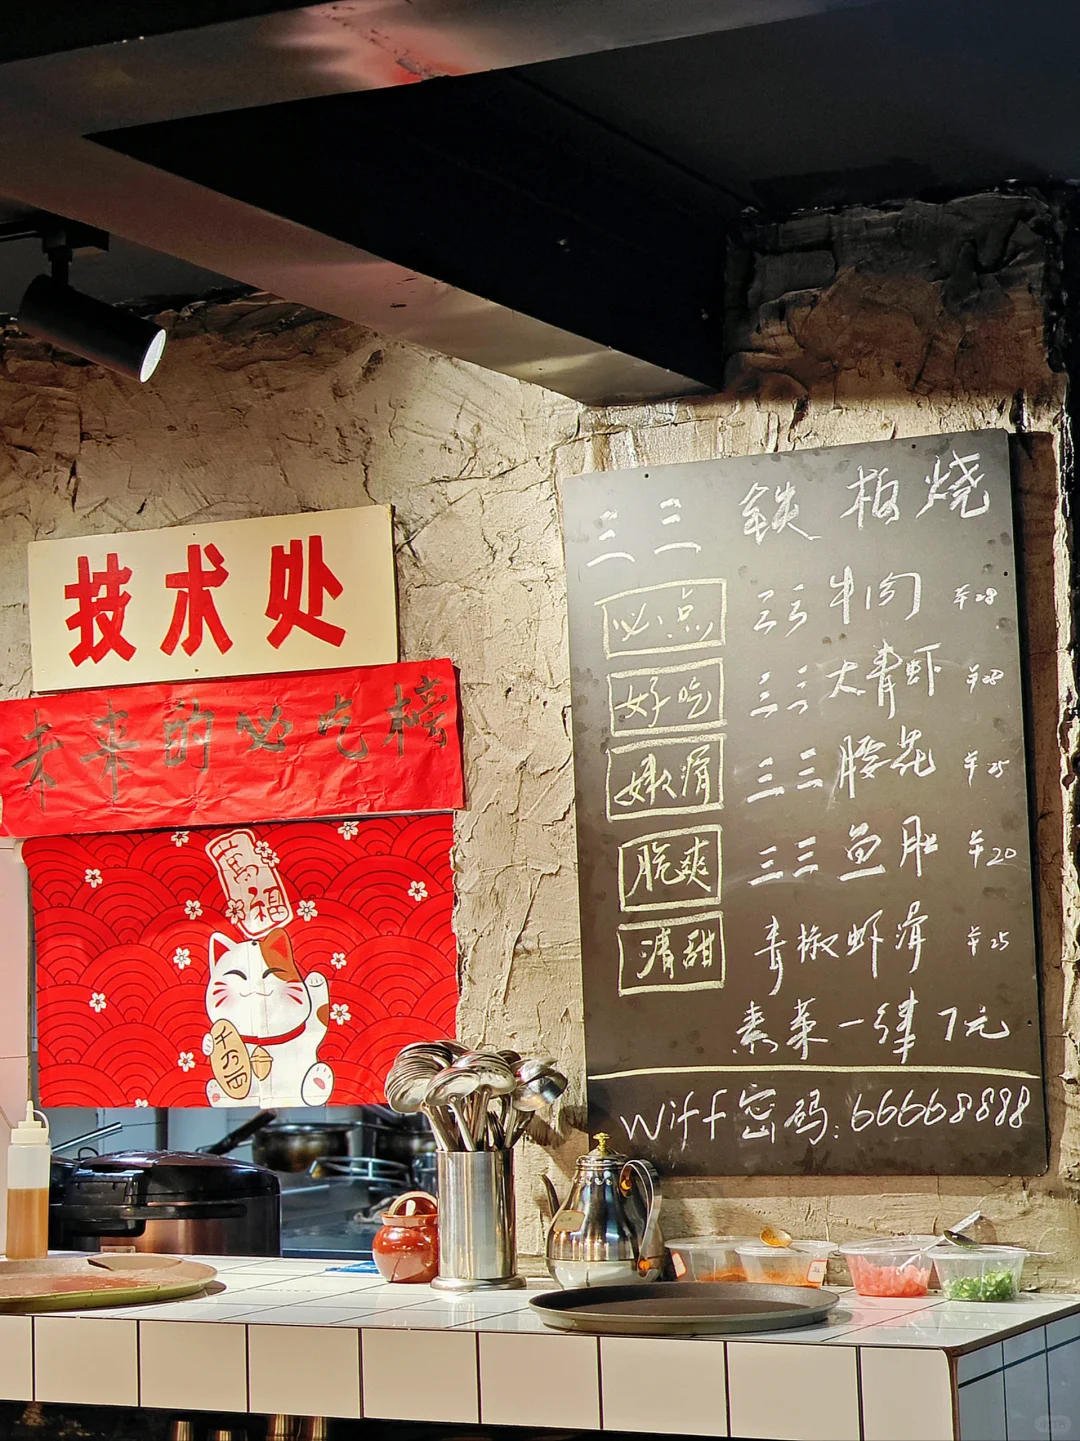 技术处
未来的必吃榜
萬福
千万両
三三 铁板烧
必点 三三牛肉 ¥28
好吃 三三大青虾 ¥28
嫩滑 三三腰花 ¥25
脆爽 三三鱼肚 ¥20
清甜 青椒虾滑 ¥25
素菜一律7元
Wiff密码:66668888